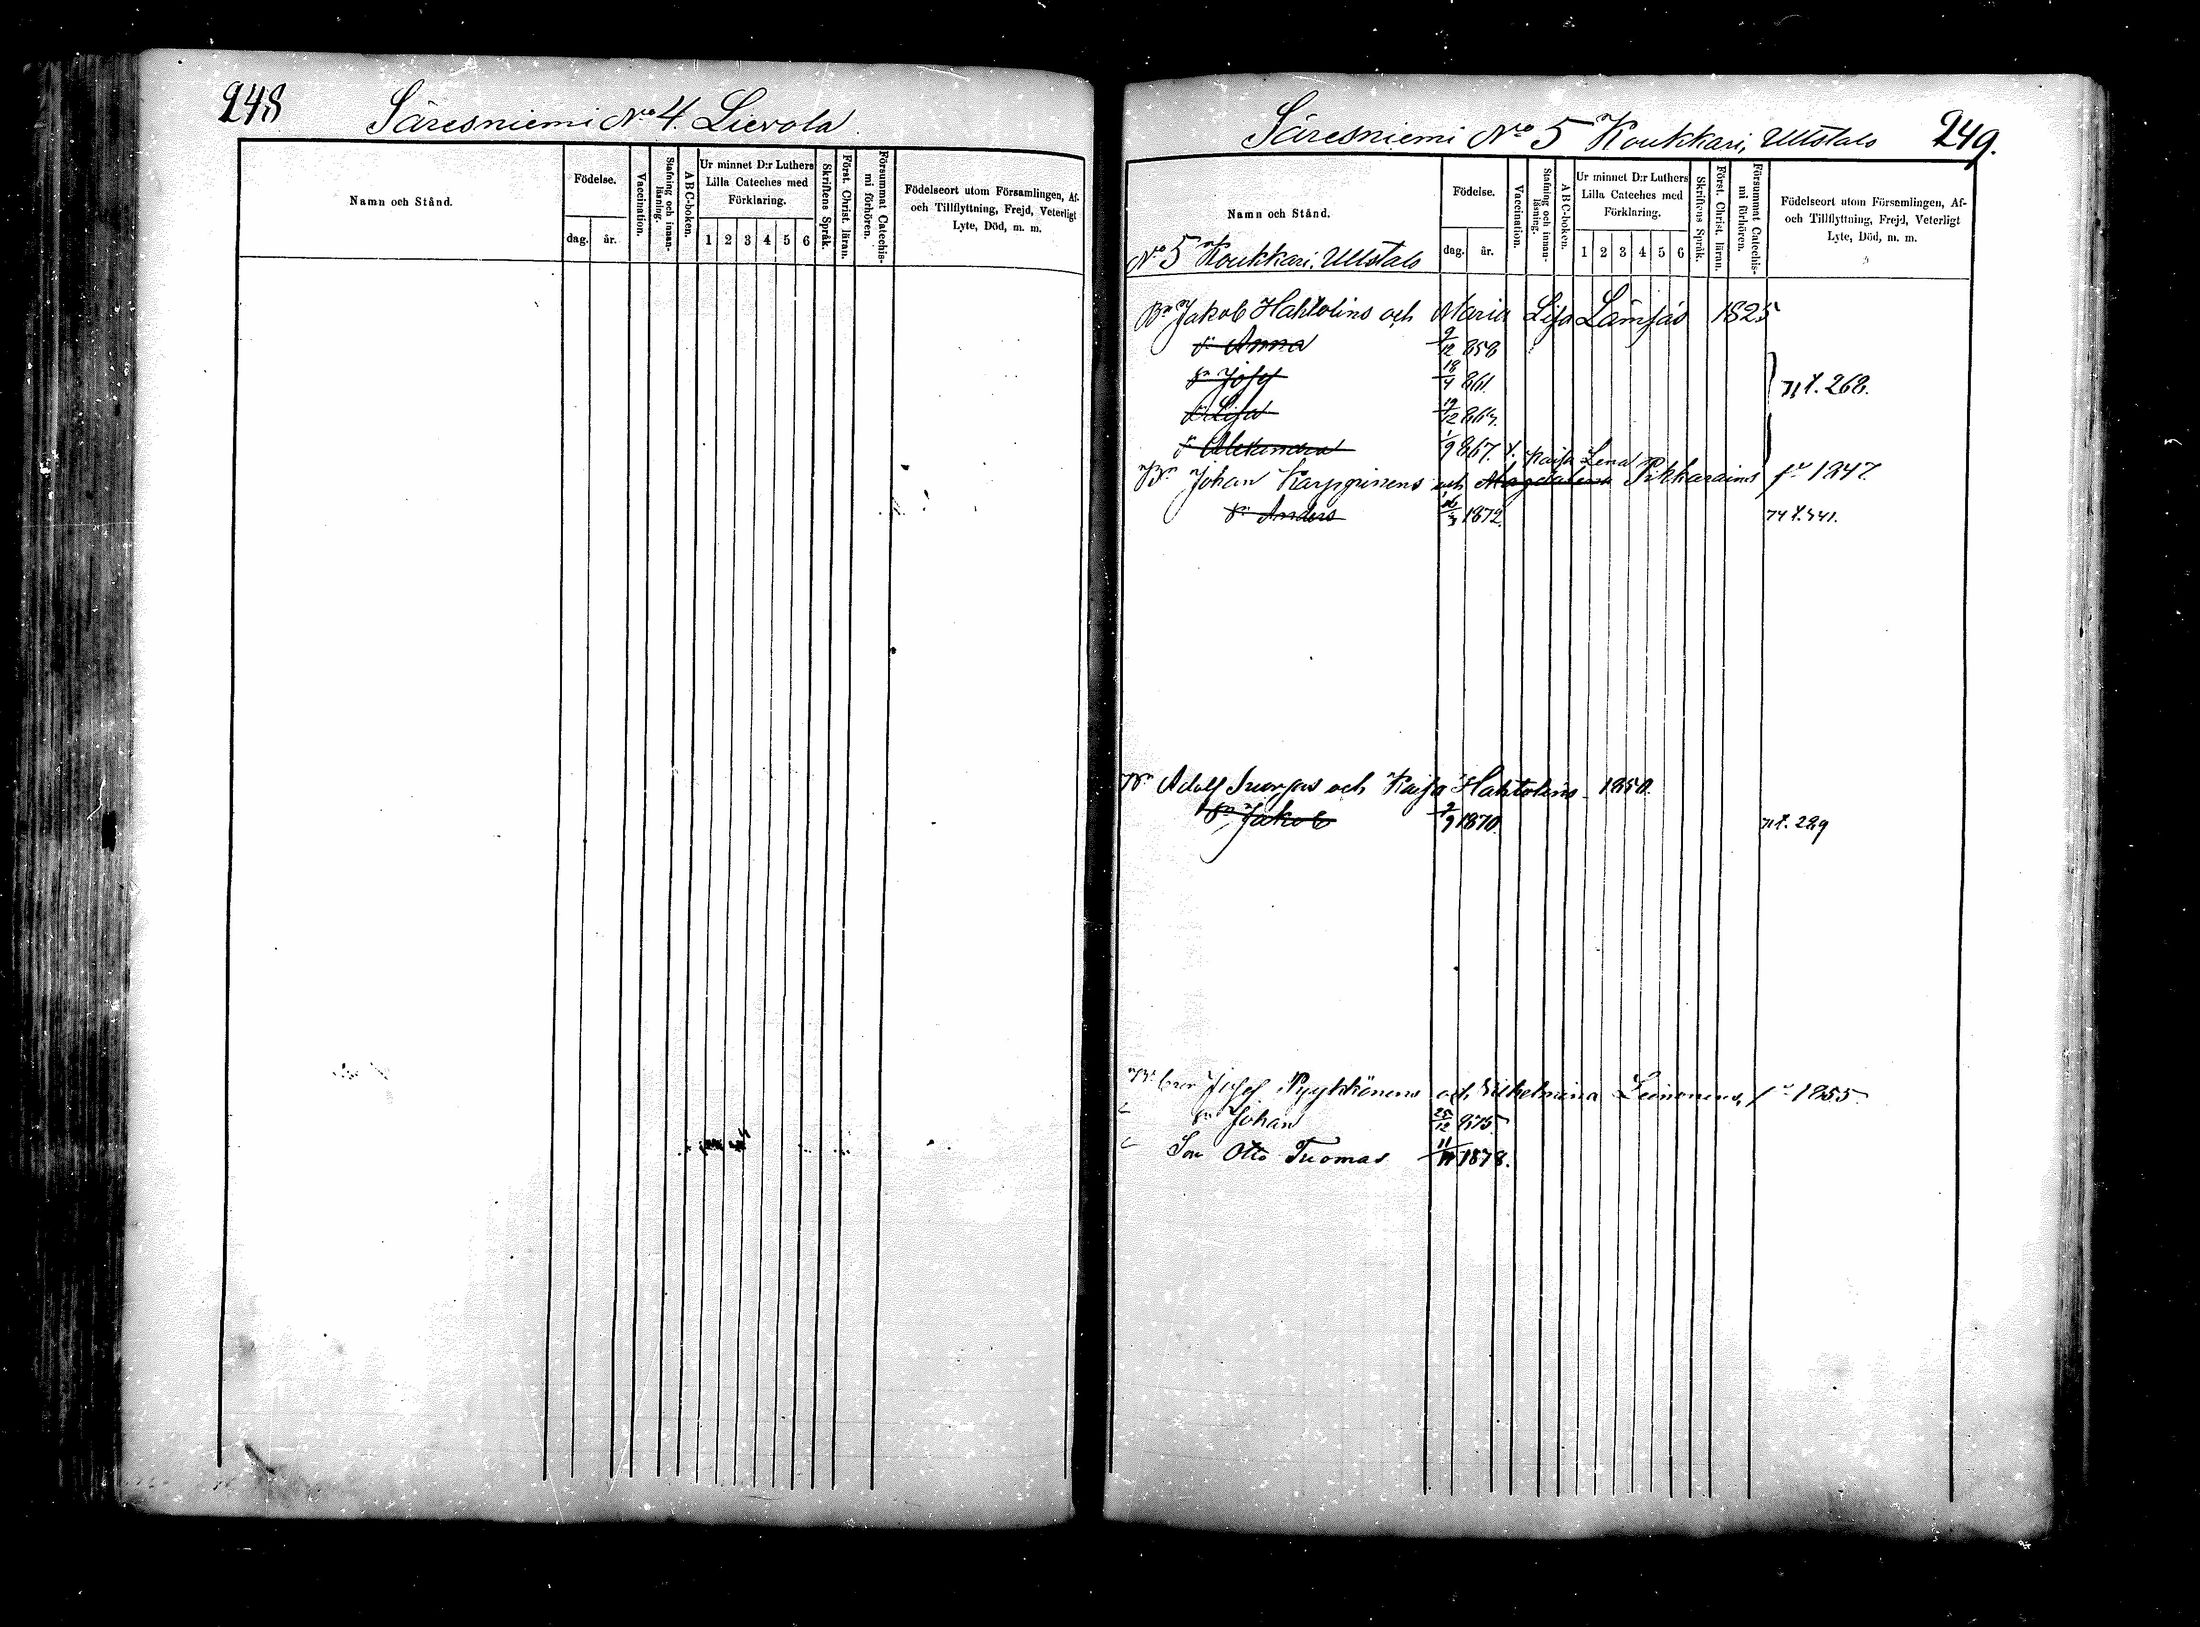 248
Säresniemi No 4. Lievola.
Namn och Stånd.
Födelse.
dag.
år.
Vaccination.
Stafning och innan-
läsning.
ABC-boken.
Ur minnet D:r Luthers
Lilla Cateches med
Förklaring.
1 2 3 4 5 6
Skriftens Språk.
Först. Christ. läran.
Försummat Catechis-
mi förhören.
Födelseort utom Församlingen, Af-
och Tillflyttning, Frejd, Veterligt
Lyte, Död, m. m.
Säresniemi No 5 Koukkari, Ullstals 249.
Namn och Stånd.
No 5 Koukkari, Ullstals
Födelse.
dag.
år.
Vaccination.
Stafning och innan-
läsning.
ABC-boken.
Ur minnet D:r Luthers
Lilla Cateches med
Förklaring.
1 2 3 4 5 6
Skriftens Språk.
Först. Christ. läran.
Försummat Catechis-
mi förhören.
Födelseort utom Församlingen, Af-
och Tillflyttning, Frejd, Veterligt
Lyte, Död, m. m.
Bn Jakob Hahtolins och Maria Lisa Lämsäs 1825
dr Anna 9/12 858
sn Josef 18/4 861. 71 t. 268.
dr Lisa 19/12 864.
dr Aleksandra 1/9 867.
Kaisa Lena
Bn Johan Karppinens och Magdalena Pikkarains fr 1847.
sn Anders 1872. 74 t. 341.
Adolf och Kaisa Hahtolins 1850.
sn Jakob 2/9 1870. 71 t. 289
Josef Pyykkönens och Wilhelmina Leinonens, fr 1855.
sn Johan 25/12 875
Son Otto Tuomas 11/11 1878.